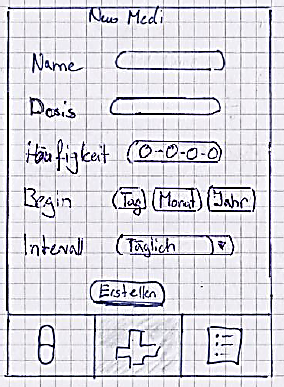 New Medi
Name
Dosis
Häufigkeit 0-0-0-0
Begin Tag Monat Jahr
Intervall Täglich
Erstellen